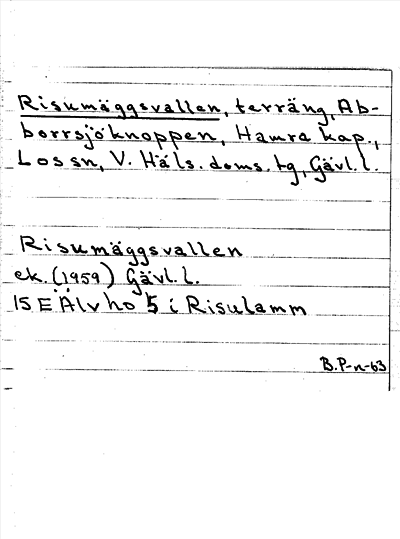 Risumäggsvallen, terräng, Ab-
borrsjöknoppen, Hamra kap.,
Los sn, V. Häls. doms. tg, Gävl. l.
Risumäggsvallen
ek. (1959) Gävl. l.
15 E Älvho 5 i Risulamm
B.P-n-63